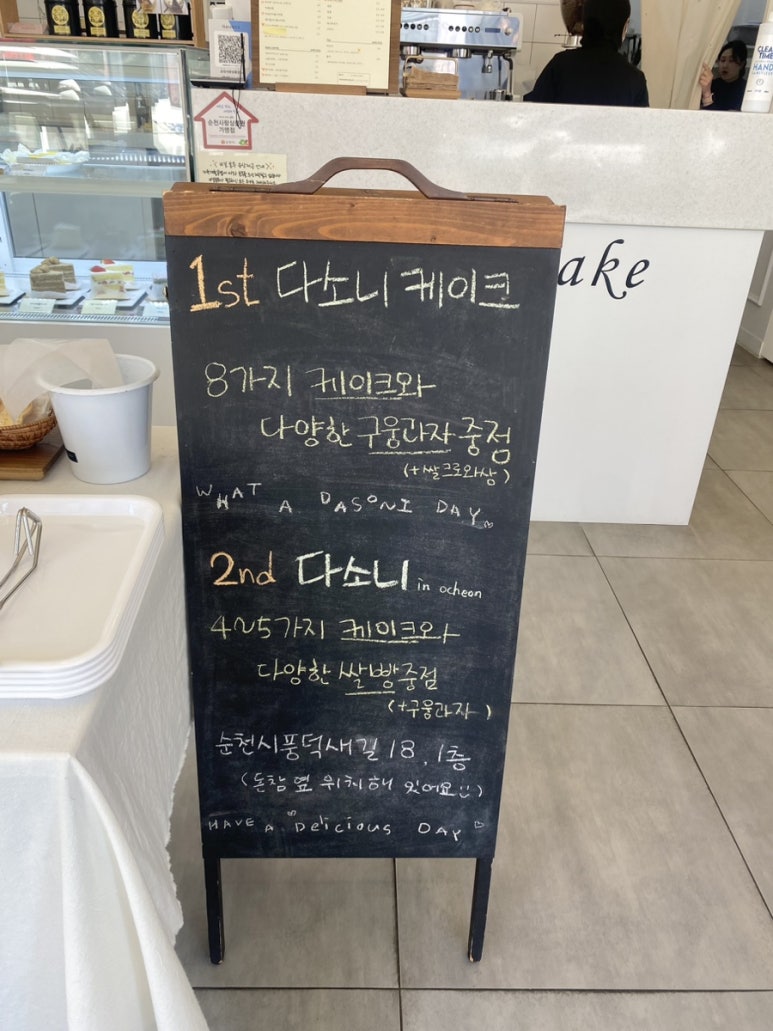 순천사랑상품권
가맹점
CLEAN
TIME
HAND
ake
1st 다소니 케이크
8가지 케이크와
다양한 구움과자 중점
(+쌀크로와상)
WHAT A DASONI DAY
2nd 다소니 in ocheon
4~5가지 케이크와
다양한 쌀빵 중점
(+구움과자)
순천시 풍덕새길 18, 1층
(돈참 옆 위치해 있어요:))
HAVE A Delicious DAY